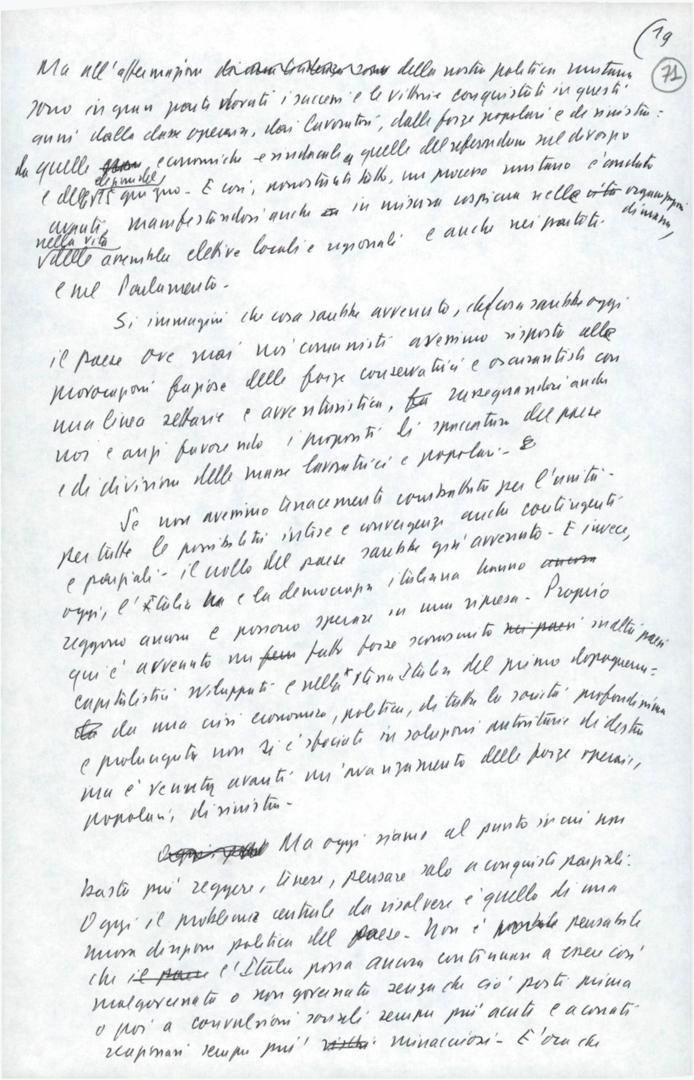 (19
71
Ma all'affermazione della nostra politica unitaria
sono in gran parte dovuti i successi e le vittorie conquistati in questi
anni dalla classe operaia, dai lavoratori, dalle forze popolari e di sinistra:
da quelle economiche e sindacali a quelle del referendum sul divorzio
e del 15 giugno. E così, nonostante tutto, un processo unitario è andato
avanti, manifestandosi anche in misura cospicua nelle organizzazioni di massa,
nella vita
delle assemblee elettive locali e regionali e anche nei partiti
e nel Parlamento.
Si immagini che cosa sarebbe avvenuto, che cosa sarebbe oggi
il paese ove mai noi comunisti avessimo risposto alle
provocazioni faziose delle forze conservatrici e oscurantiste con
una linea settaria e avventuristica, rassegnandosi anche
noi e anzi favorendo i propositi di spaccatura del paese
e di divisione delle masse lavoratrici e popolari.
Se non avessimo tenacemente combattuto per l'unità -
per tutte le possibili intese e convergenze anche contingenti
e parziali - il crollo del paese sarebbe già avvenuto. E invece,
oggi, l'Italia e la democrazia italiana hanno
reggono ancora e possono sperare in una ripresa. Proprio
qui è avvenuto un fatto forse sconosciuto in altri paesi
capitalistici sviluppati e nella stessa Italia del primo dopoguerra:
da una crisi economica, politica, di tutta la società profondissima
e prolungata non si è sfociati in soluzioni autoritarie di destra
ma è venuto avanti un avanzamento delle forze operaie,
popolari, di sinistra.
Ma oggi siamo al punto in cui non
basta più reggere, tenere, pensare solo a conquiste parziali.
Oggi il problema centrale da risolvere è quello di una
nuova direzione politica del paese. Non è pensabile
che l'Italia possa ancora continuare a essere così
malgovernata o non governata senza che ciò porti prima
o poi a convulsioni sociali sempre più acute e a conati
reazionari sempre più minacciosi. E' ora che